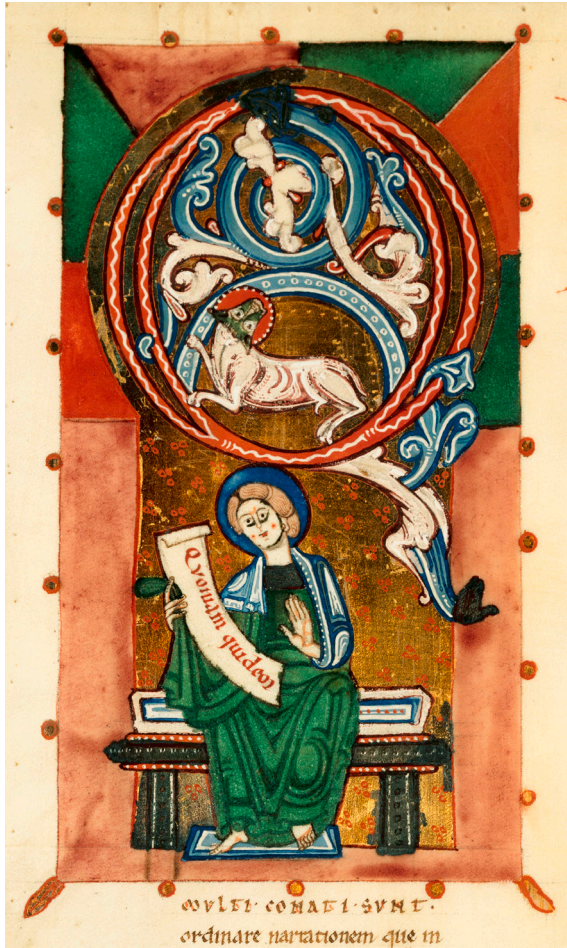 Qvoniam quidem
MVLTI·CONATI·SVNT·
ordinare narrationem que in